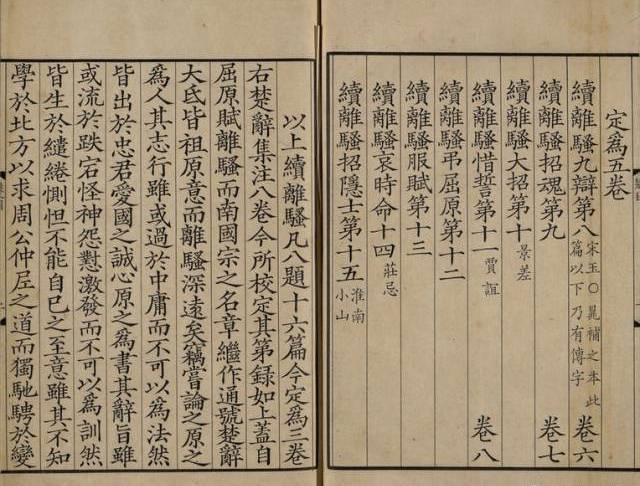 定爲五卷
續離騷九辯第八 宋玉○晁補之本此篇以下乃有傳字 卷六
續離騷招魂第九 卷七
續離騷大招第十 景差
續離騷惜誓第十一 賈誼 卷八
續離騷弔屈原第十二
續離騷服賦第十三
續離騷哀時命十四 莊忌
續離騷招隱士第十五 淮南小山
以上續離騷凡八題十六篇今定爲三卷
右楚辭集注八卷今所校定其第録如上蓋自
屈原賦離騷而南國宗之名章繼作通號楚辭
大氐皆祖原意而離騷深遠矣竊嘗論之原之
爲人其志行雖或過於中庸而不可以爲法然
皆出於忠君愛國之誠心原之爲書其辭旨雖
或流於跌宕怪神怨懟激發而不可以爲訓然
皆生於繾綣惻怛不能自已之至意雖其不知
學於北方以求周公仲尼之道而獨馳騁於變